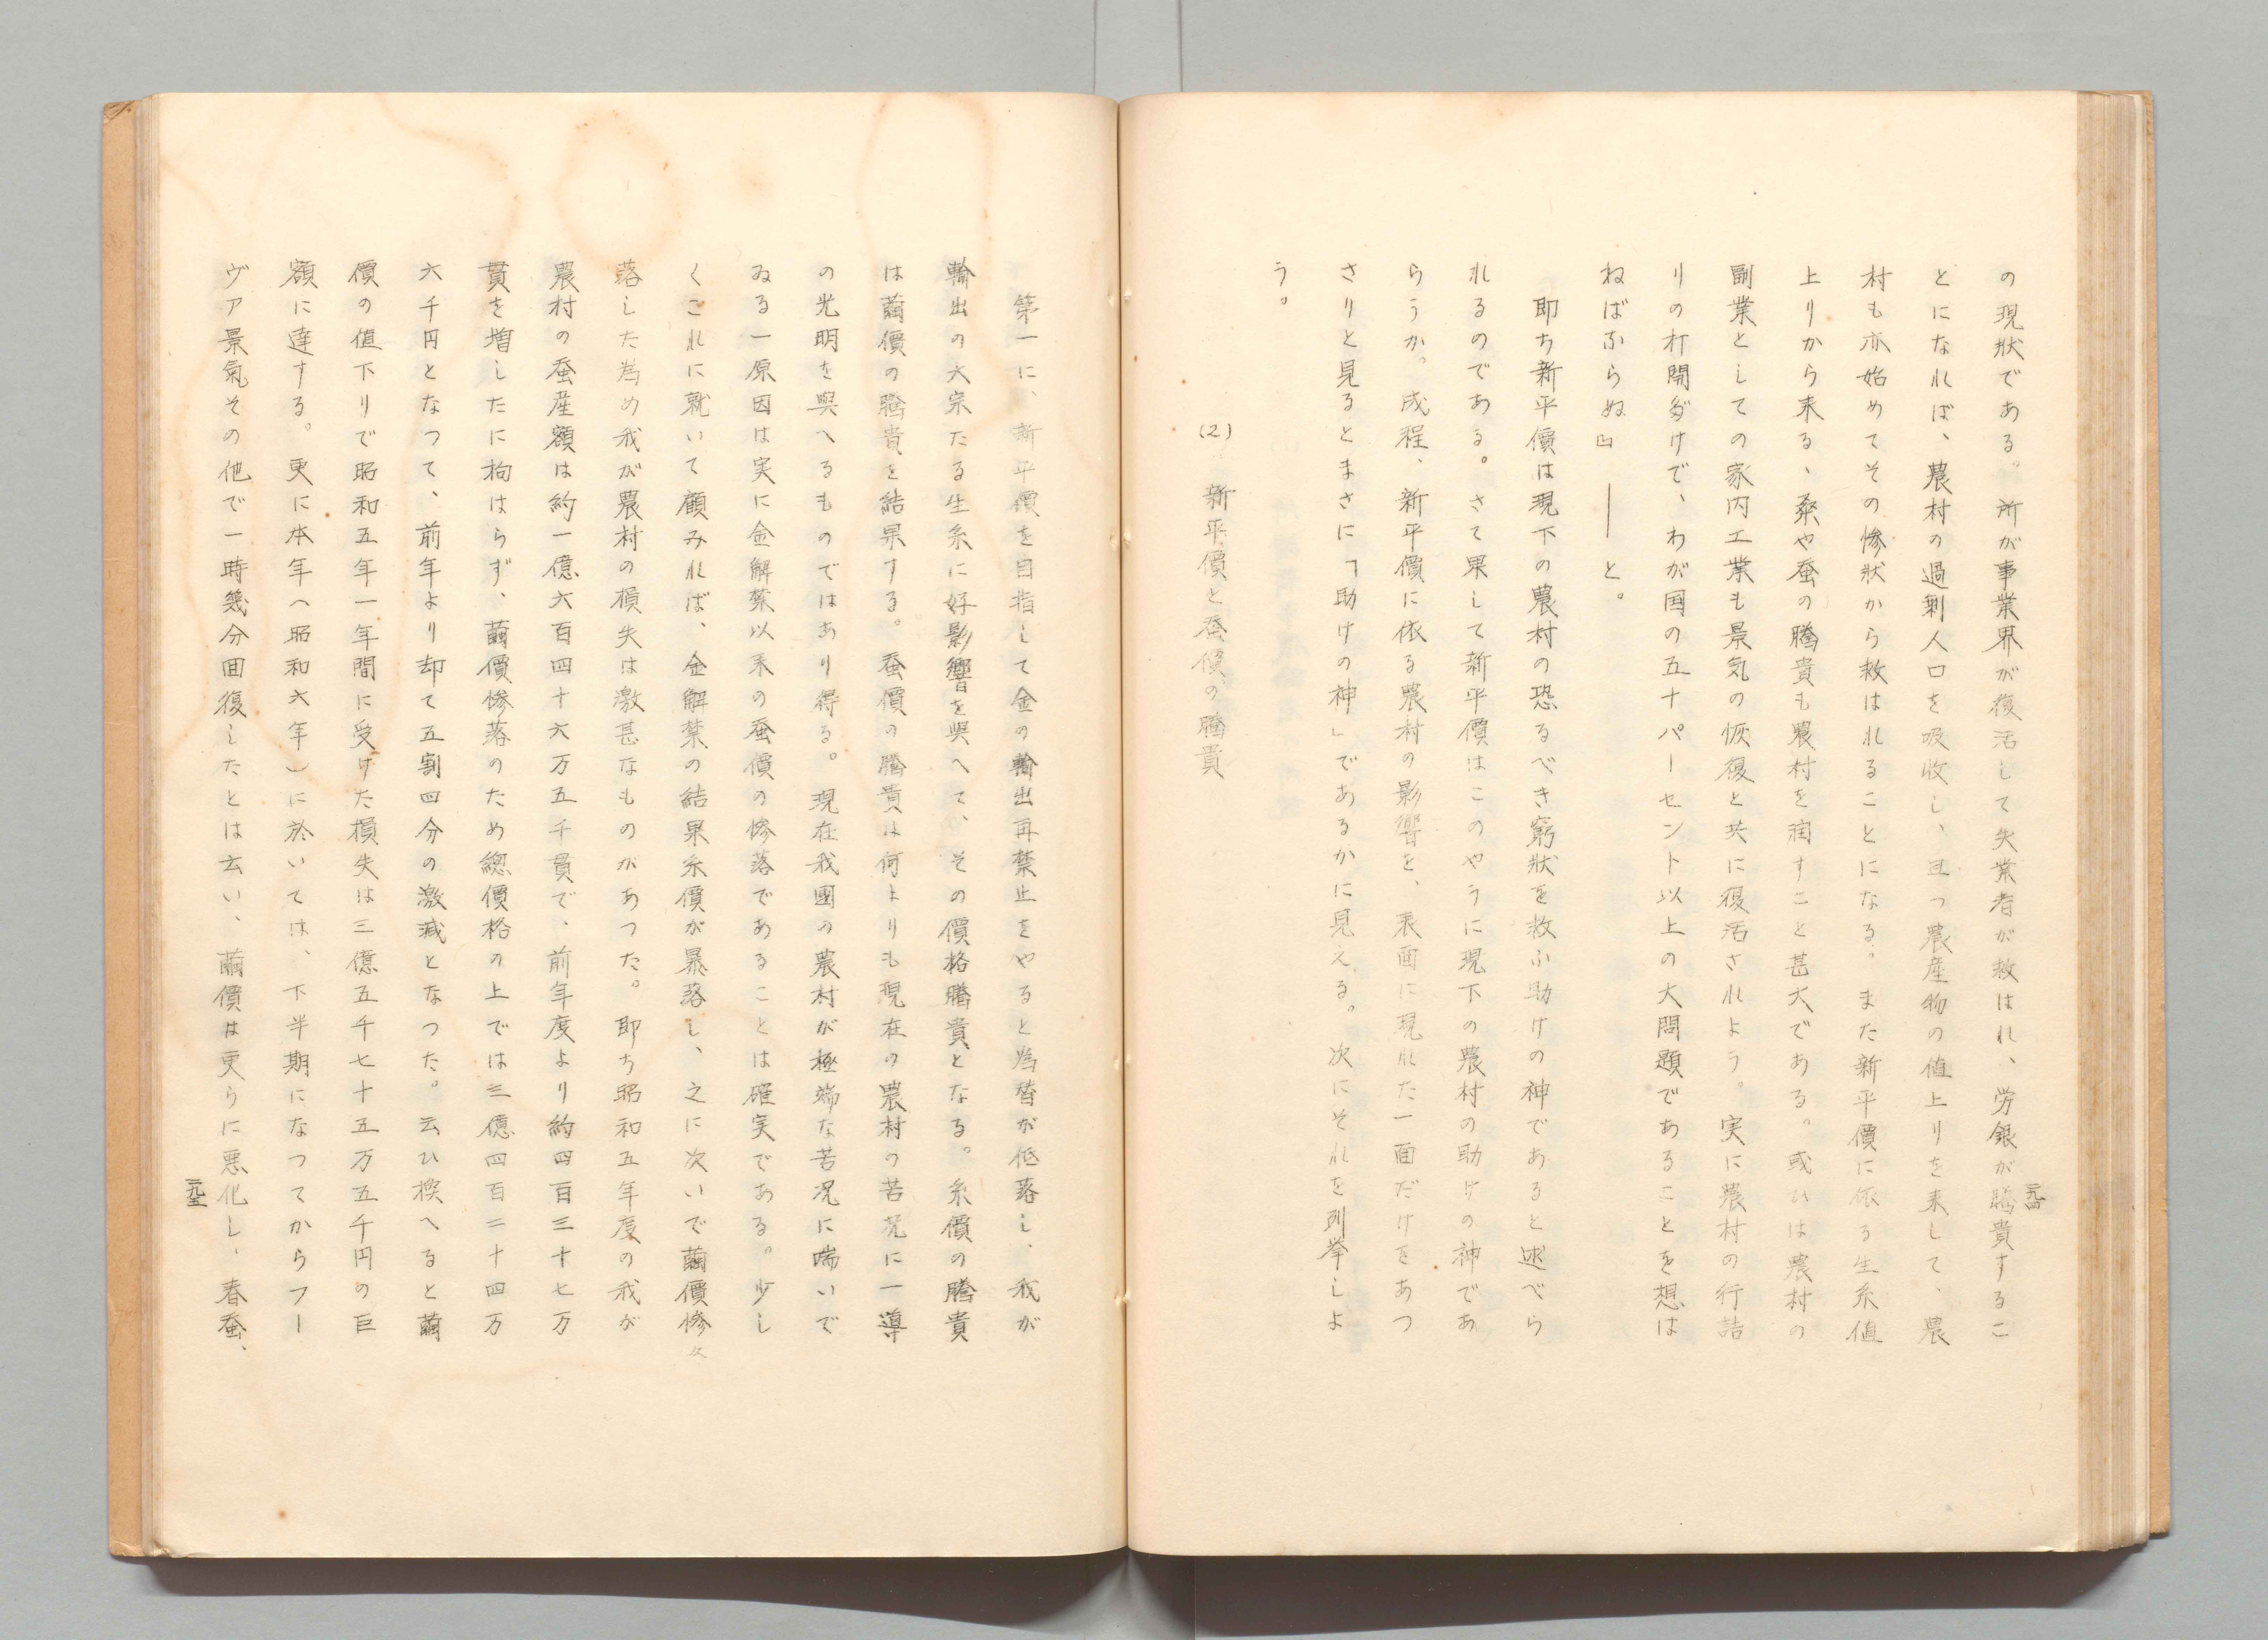 の現狀である。所が事業界が復活して失業者が救はれ、労銀が騰貴するこ
とになれば、農村の過剰人口を吸收し、且つ農産物の値上りを来して、農
村も亦始めてその慘狀から救はれることになる。また新平價に依る生糸値
上りから来る、桒や蚕の騰貴も農村を潤すこと甚大である。或ひは農村の
副業としての家内工業も景気の恢復と共に復活されよう。実に農村の行詰
りの打開ダけで、わが国の五十パーセント以上の大問題であることを想は
ねばならぬ』――と。
即ち新平價は現下の農村の恐るべき窮狀を救ふ助けの神であると述べら
れるのである。さて果して新平價はこのやうに現下の農村の助けの神であ
らうか。成程、新平價に依る農村の影響を、表面に現れた一面だけをあつ
さりと見るとまさに「助けの神」であるかに見える。次にそれを列挙しよ
う。
(2) 新平價と蚕價の騰貴
一九四
第一に、新平價を目指して金の輸出再禁止をやると為替が低落し、我が
輸出の大宗たる生糸に好影響を與へて、その價格騰貴となる。糸價の騰貴
は繭價の騰貴を結果する。蚕價の騰貴は何よりも現在の農村の苦况に一導
の光明を與へるものではあり得る。現在我國の農村が極端な苦况に喘いで
ゐる一原因は実に金解禁以来の蚕價の慘落であることは確実である。少し
くこれに就いて顧みれば、金解禁の結果糸價が暴落し、之に次いで繭價慘々
落した為め我が農村の損失は激甚なものがあつた。即ち昭和五年度の我が
農村の蚕産額は約一億六百四十六万五千貫で、前年度より約四百三十七万
貫を増したに拘はらず、繭價慘落のため總價格の上では三億四百二十四万
六千円となつて、前年より却て五割四分の激減となつた。云ひ換へると繭
價の値下りで昭和五年一年間に受けた損失は三億五千七十五万五千円の巨
額に達する。更に本年（昭和六年）に於いては、下半期になつてからフー
ヴア景氣その他で一時幾分回復したとは云い、繭價は更らに悪化し、春蚕、
一九五